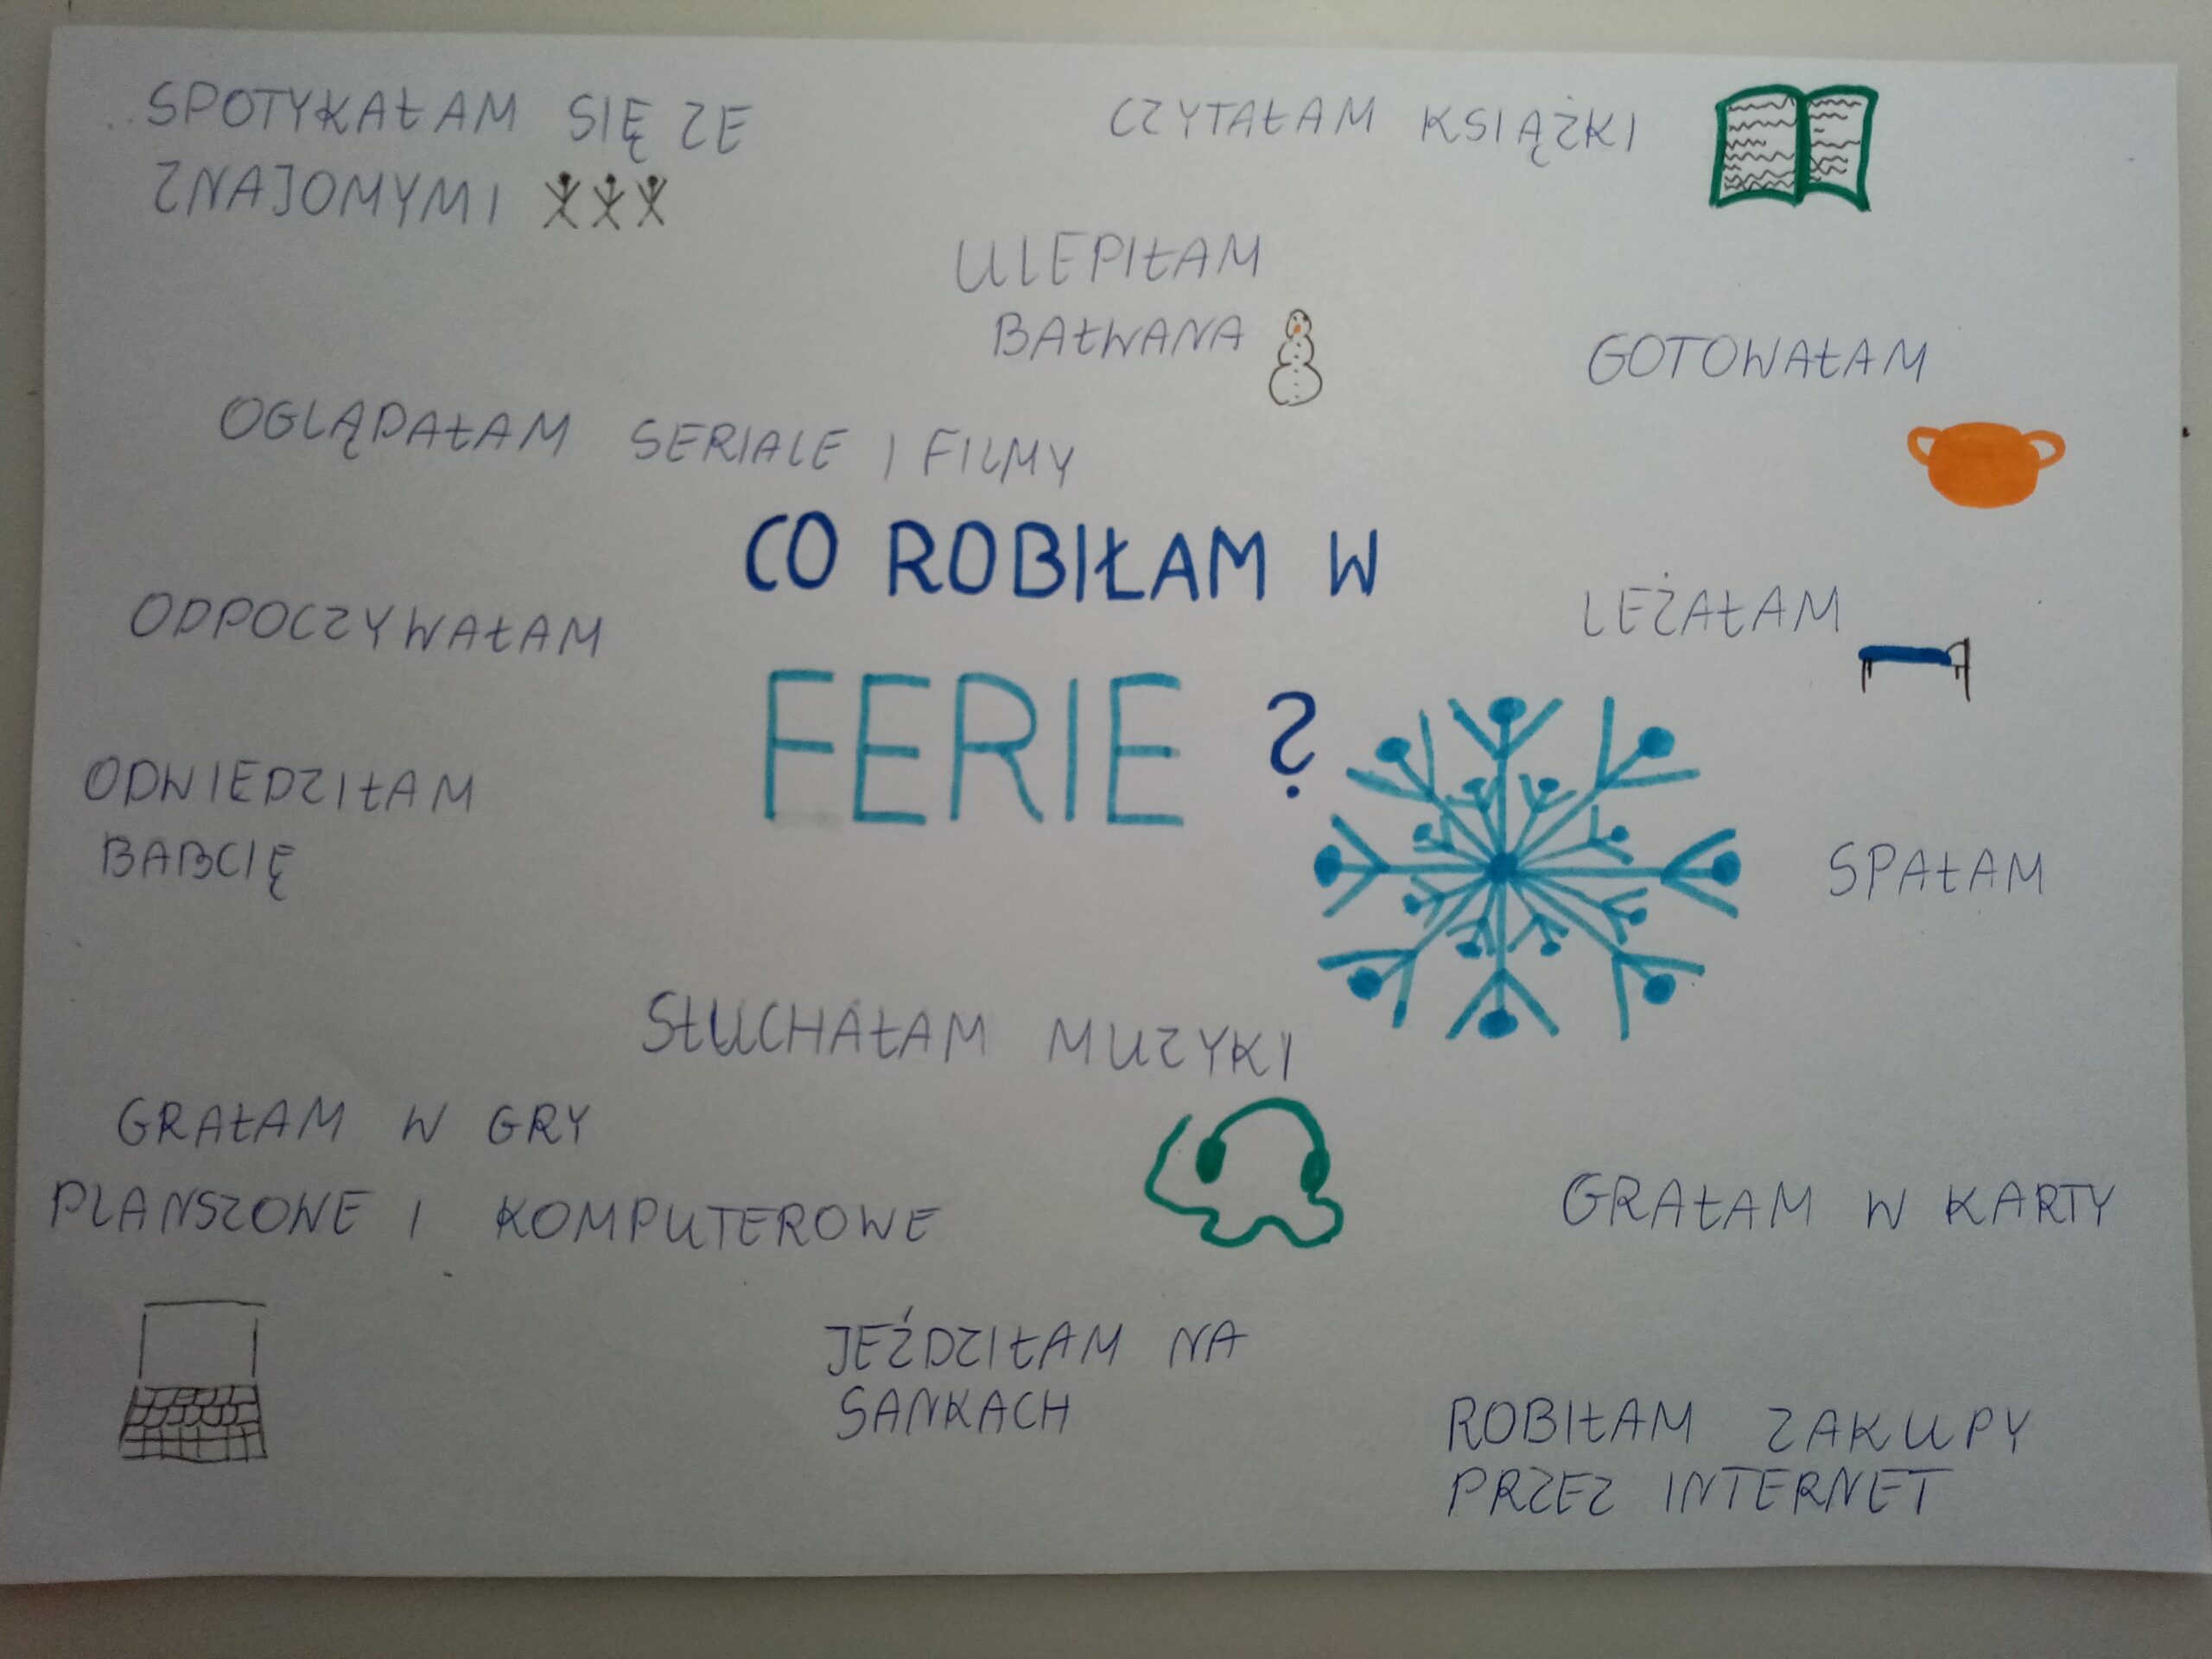 SPOTYKAŁAM SIĘ ZE
ZNAJOMYMI
CZYTAŁAM KSIĄŻKI
ULEPIŁAM
BAŁWANA
GOTOWAŁAM
OGLĄDAŁAM SERIALE I FILMY
CO ROBIŁAM W
FERIE ?
ODPOCZYWAŁAM
LEŻAŁAM
ODWIEDZIŁAM
BABCIĘ
SPAŁAM
SŁUCHAŁAM MUZYKI
GRAŁAM W GRY
PLANSZOWE I KOMPUTEROWE
GRAŁAM W KARTY
JEŹDZIŁAM NA
SANKACH
ROBIŁAM ZAKUPY
PRZEZ INTERNET